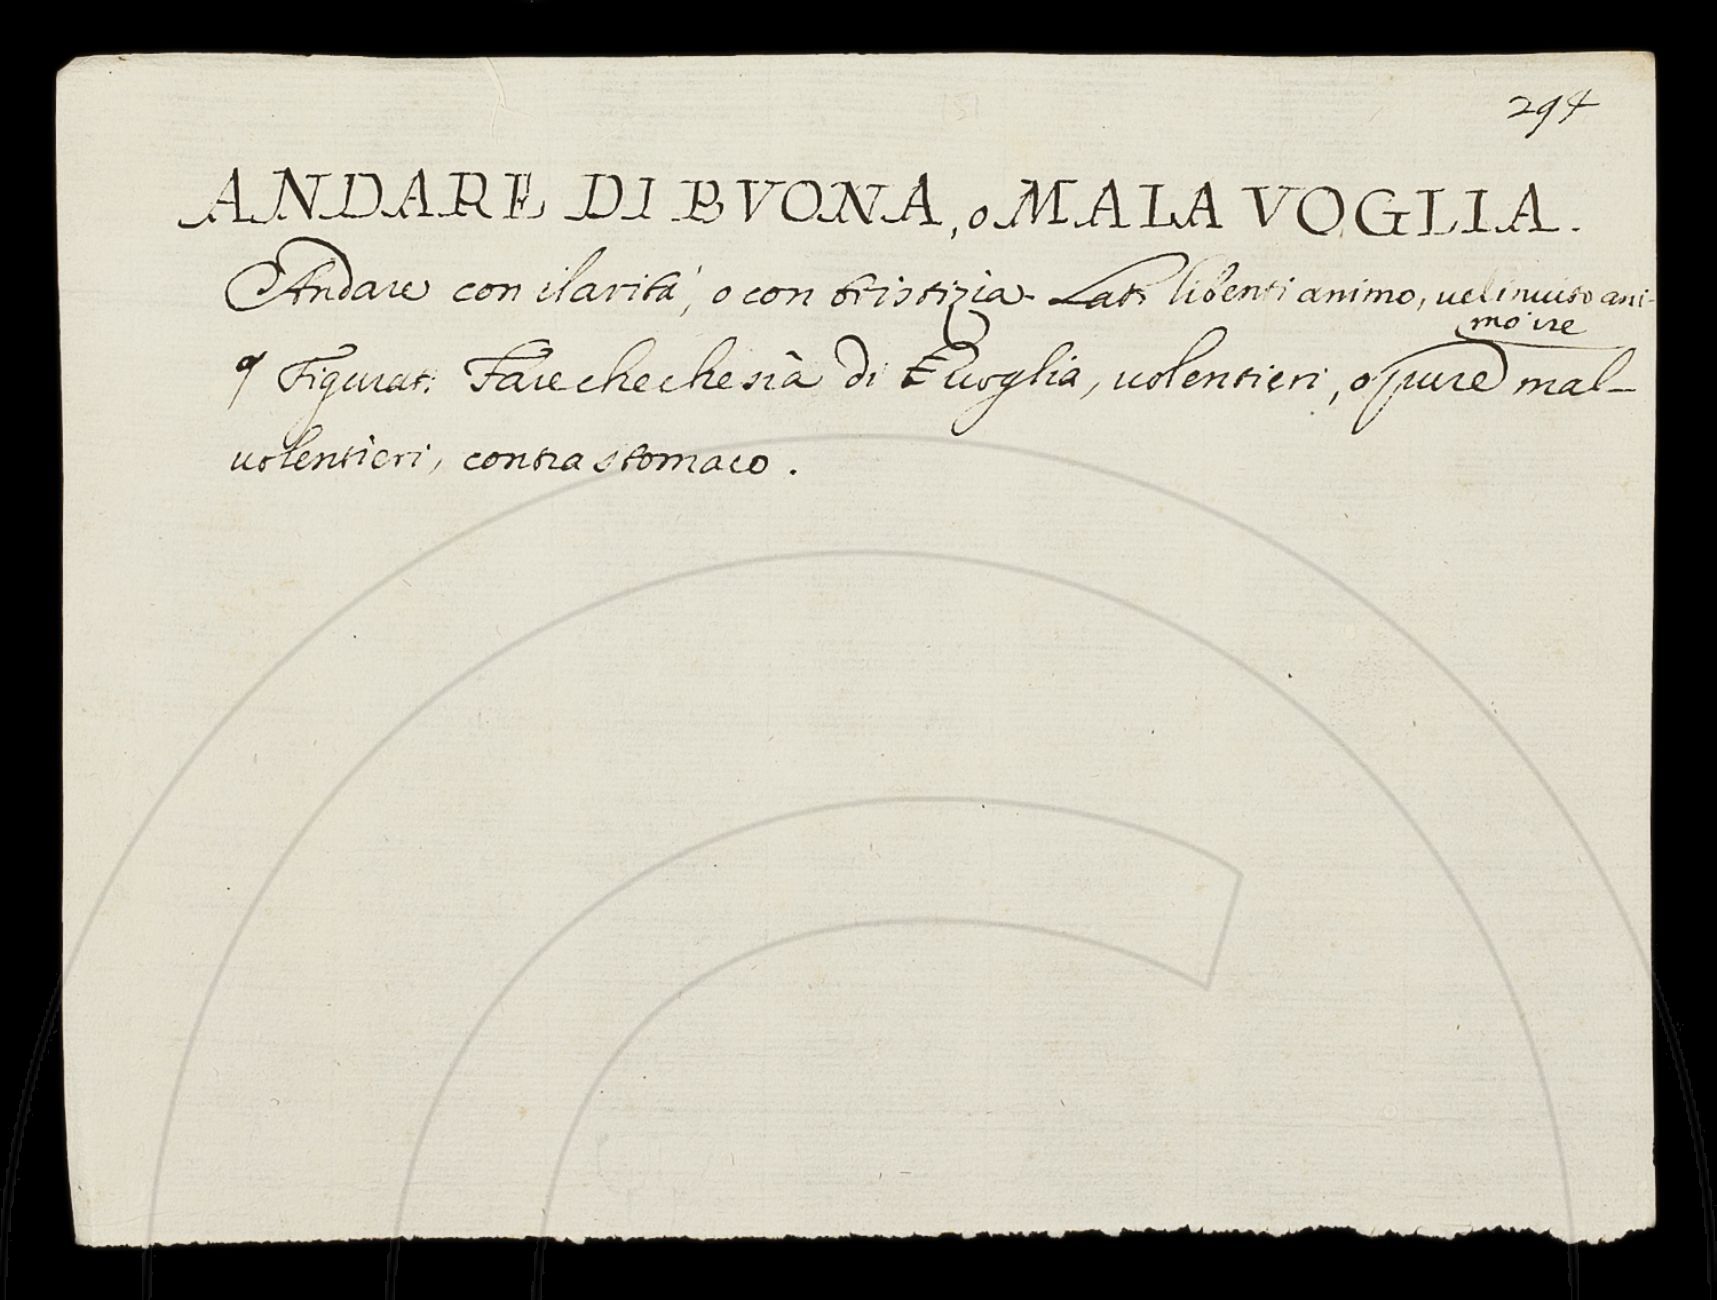 294
ANDARE DI BVONA, o MALA VOGLIA.
Andare con ilarità, o con tristizia. Lat. libenti animo, uel inuito ani-
mo ire
¶ Figurat. Fare chechesià di voglia, uolentieri, o pure mal-
uolentieri, contra stomaco.